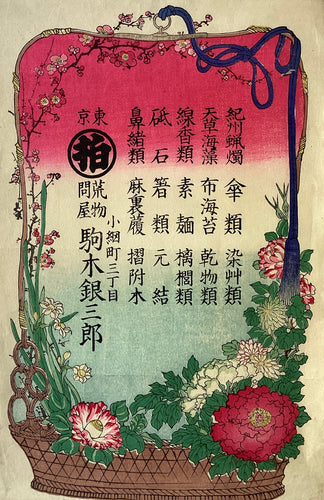 紀州蝋燭 傘類 染艸類
天草海藻 布海苔 乾物類
線香類 素麺 棕櫚類
砥石 箸類 元結
鼻緒類 麻裏履 摺附木
東京
拍
荒物問屋
小網町三丁目
駒木銀三郎